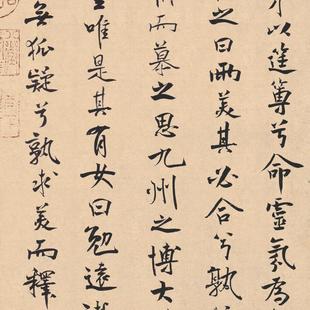 以筳篿兮命靈氛為
之曰兩美其必合兮孰
而慕之思九州之博大
唯是其有女曰勉遠
無狐疑兮孰求美而釋